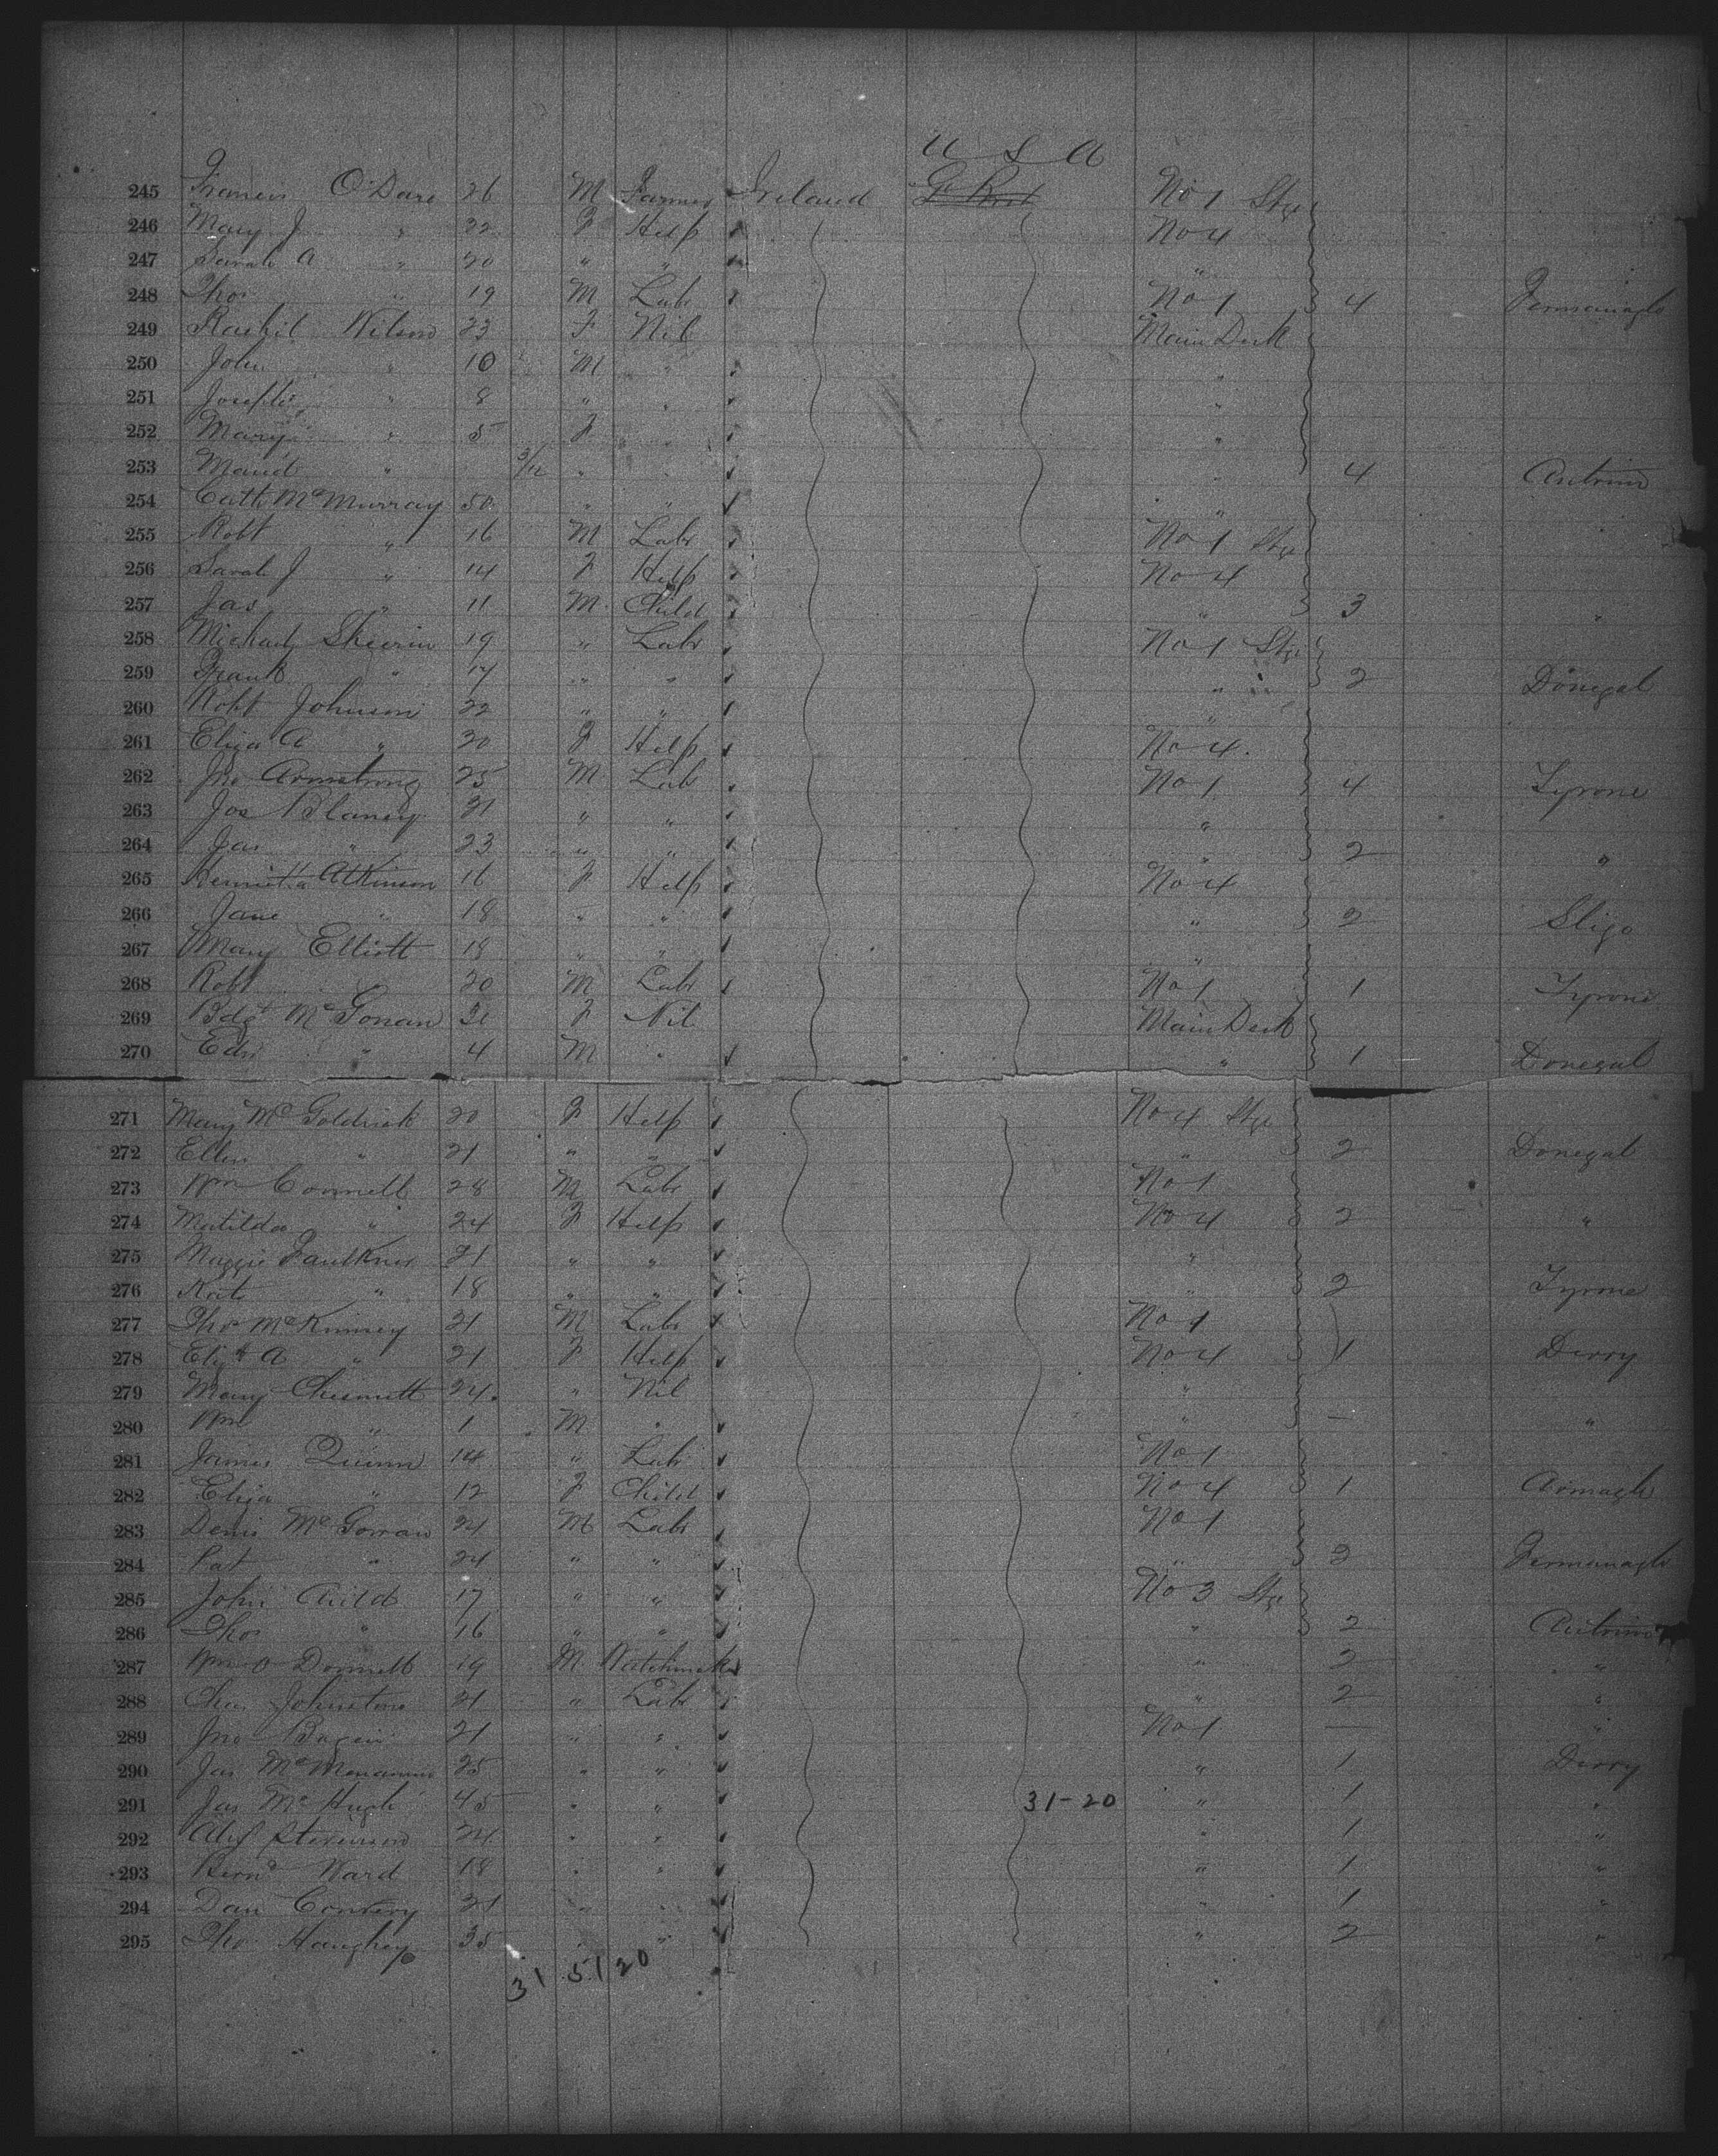 U S A
245 Francis O'Dare 26 M Farmer Ireland No 1 Stge
246 Mary J " 22 F Help " No 4
247 Sarah A " 20 " " " "
248 Thos " 19 M Labr " No 1 4 Fermanagh
249 Rachil Wilson 33 F Nil Main Deck
250 John " 10 M " " "
251 Joseph " 8 " " " "
252 Mary " 5 F " " "
253 Maud " 3/12 " " " 4 Antrim
254 Cath McMurray 50 " " "
255 Robt " 16 M Labr " No 1 Stge
256 Sarah J " 14 F Help " No 4
257 Jas " 11 M Child " " 3 "
258 Michael Sheerin 19 " Labr " No 1 Stge
259 Frank " 17 " " " " 2 Donegal
260 Robt Johnson 22 " " " "
261 Eliza A " 20 F Help " No 4
262 Jno Armstrong 25 M Lab " No 1 4 Tyrone
263 Jos Blaney 21 " " " "
264 Jas " 23 " " " " 2 "
265 Atkinson 16 F Help " No 4
266 Jane " 18 " " " " 2 Sligo
267 Mary Elliott 18 " " " "
268 Robt 20 M Labr " No 1 1 Tyrone
269 Bdgt McGonan 31 F Nil Main Deck
270 Edw " 4 M " " " 1 Donegal
271 Mary McGoldrick 20 F Help " No 4 Stge
272 Ellen " 21 " " " " 2 Donegal
273 Wm Connell 28 M Labr " No 1
274 Matilda " 24 F Help " No 4 2 "
275 Maggie Faulkner 21 " " " "
276 Kate " 18 " " " " 2 Tyrone
277 Thos McKinney 21 M Labr " No 1
278 Elizth A " 21 F Help " No 4 1 Derry
279 Mary Chesnutt 24 " Nil "
280 Wm " 1 M " " " — "
281 James Quinn 14 " Labr " No 1
282 Eliza " 12 F Child " No 4 1 Armagh
283 Denis McGowan 24 M Labr " No 1
284 Pat " 24 " " " " 2 Fermanagh
285 John Auild 17 " " " No 3 Stge
286 Thos " 16 " " " " 2 Antrim
287 Wm O Donnell 19 M Watchmaker " 2 "
288 Chas Johnstone 21 " Labr " " 2 "
289 Jno 21 " " " No 1 — "
290 Jas McMenamin 25 " " " " 1 Derry
291 Jas McHugh 45 " " " 31-20 " 1 "
292 Alex Stevenson 24 " " " " 1 "
293 Bernd Ward 18 " " " " 1 "
294 Dan Convery 21 " " " " 1 "
295 Thos Haughey 35 " " " " 2 "
31 51 20